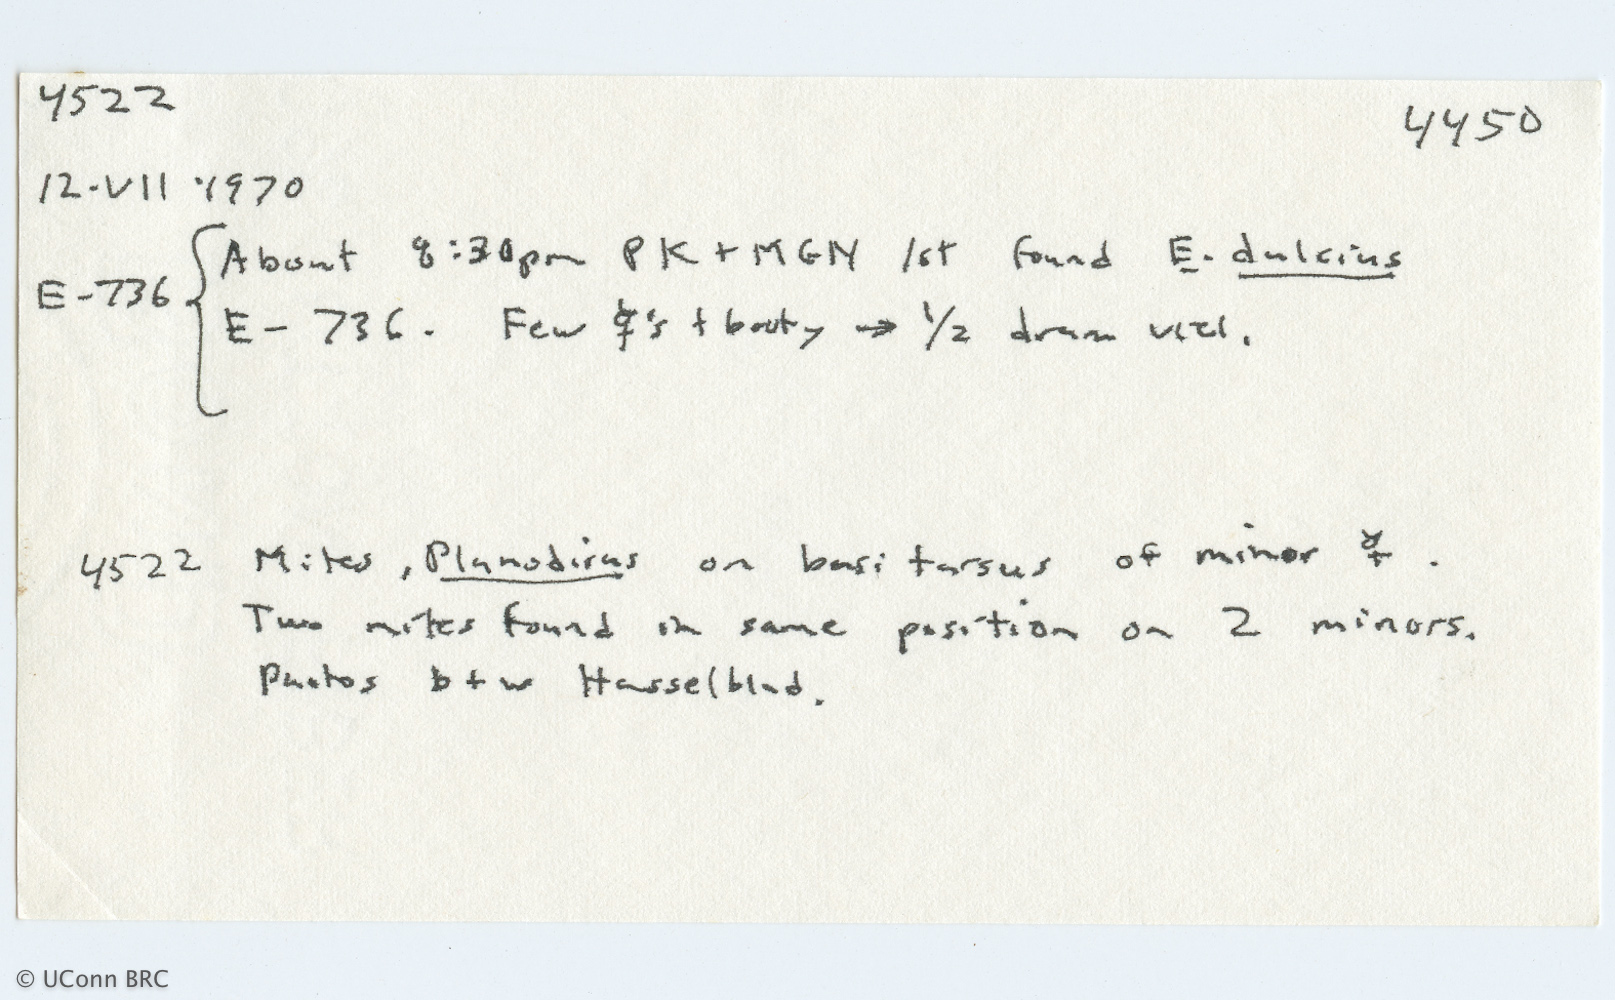 4522
4450
12·VII·1970
E-736
About 8:30pm PK + MGN 1st found E. dulcius
E-736. Few ☿'s + booty → 1/2 dram vial.
4522 Mites, Planodiscus on basitarsus of minor ☿.
Two mites found in same position on 2 minors.
Photos b+w Hasselblad.
© UConn BRC